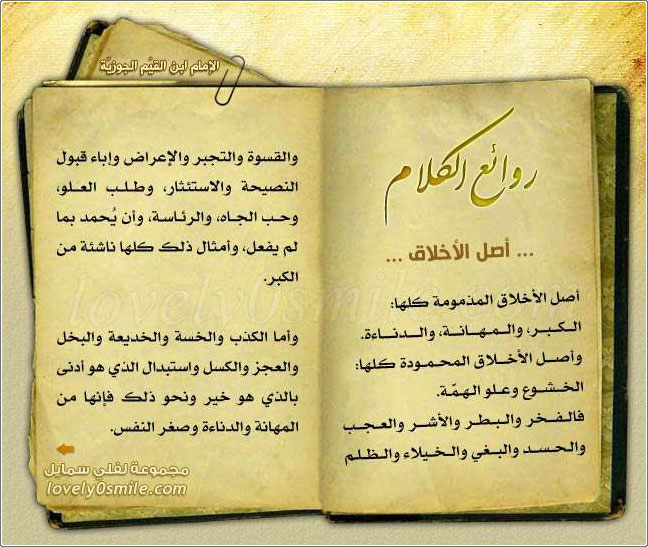 الإمام ابن القيّم الجوزيّة
روائع الكلام
... أصل الأخلاق ...
أصل الأخلاق المذمومة كلها:
الكبر، والمهانة، والدناءة.
وأصل الأخلاق المحمودة كلها:
الخشوع وعلو الهمّة.
فالفخر والبطر والأشر والعجب
والحسد والبغي والخيلاء والظلم
والقسوة والتجبر والإعراض وإباء قبول
النصيحة والاستئثار، وطلب العلو،
وحب الجاه، والرئاسة، وأن يُحمد بما
لم يفعل، وأمثال ذلك كلها ناشئة من
الكبر.
وأما الكذب والخسة والخديعة والبخل
والعجز والكسل واستبدال الذي هو أدنى
بالذي هو خير ونحو ذلك فإنها من
المهانة والدناءة وصغر النفس.
مجموعة لفلي سمايل
lovely0smile.com
lovely0smile.com